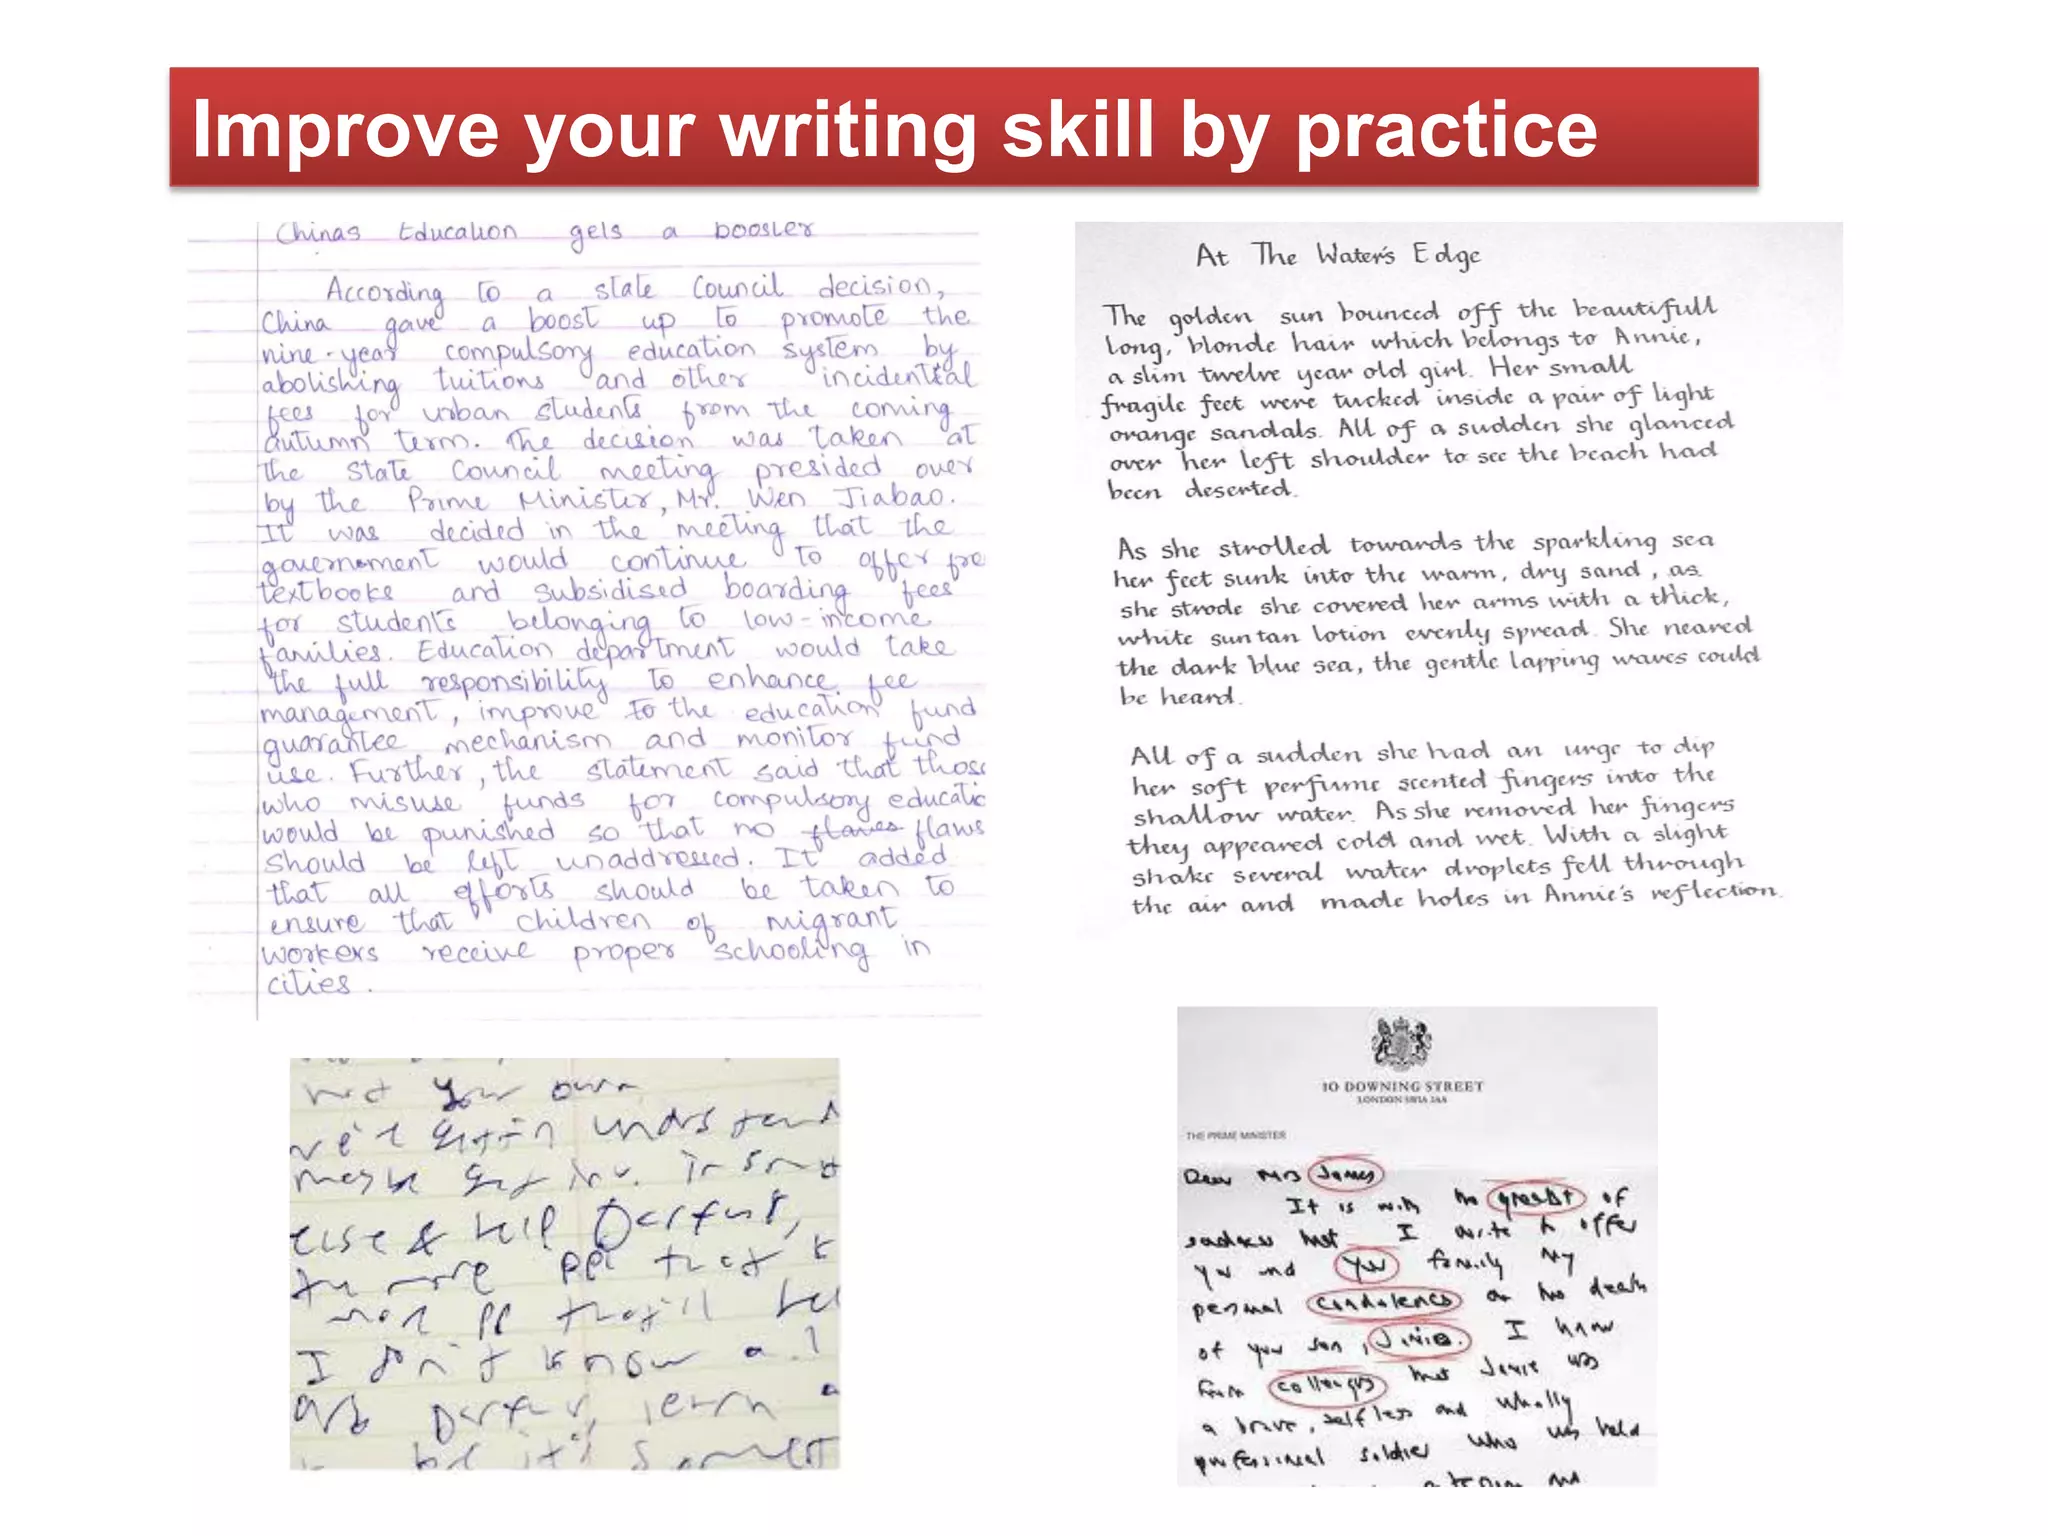 Improve your writing skill by practice
Chinas Education gets a booster
According to a state Council decision,
China gave a boost up to promote the
nine-year compulsory education system by
abolishing tuitions and other incidential
fees for urban students from the coming
autumn term. The decision was taken at
the State Council meeting presided over
by the Prime Minister, Mr. Wen Jiabao.
It was decided in the meeting that the
government would continue to offer fre
textbooks and subsidised boarding fees
for students belonging to low-income
families. Education department would take
the full responsibility to enhance fee
management, improve to the education fund
guarantee mechanism and monitor fund
use. Further, the statement said that thos
who misuse funds for compulsory educatio
would be punished so that no flaws
should be left unaddressed. It added
that all efforts should be taken to
ensure that children of migrant
workers receive proper schooling in
cities.
At The Water's Edge
The golden sun bounced off the beautifull
long, blonde hair which belongs to Annie,
a slim twelve year old girl. Her small
fragile feet were tucked inside a pair of light
orange sandals. All of a sudden she glanced
over her left shoulder to see the beach had
been deserted.
As she strolled towards the sparkling sea
her feet sunk into the warm, dry sand, as
she strode she covered her arms with a thick,
white suntan lotion evenly spread. She neared
the dark blue sea, the gentle lapping waves could
be heard.
All of a sudden she had an urge to dip
her soft perfume scented fingers into the
shallow water. As she removed her fingers
they appeared cold and wet. With a slight
shake several water droplets fell through
the air and made holes in Annie's reflection.
not your own
understand
else & help
more ppl that
ppl they'll
I don't know a
learn a
it's
10 DOWNING STREET
LONDON SW1A 2AA
THE PRIME MINISTER
Dear Mrs James
It is with the of
sadness that I write to offer
you and family my
personal on the death
of your son, I know
from that Jamie was
a brave, selfless and wholly
professional soldier who was held